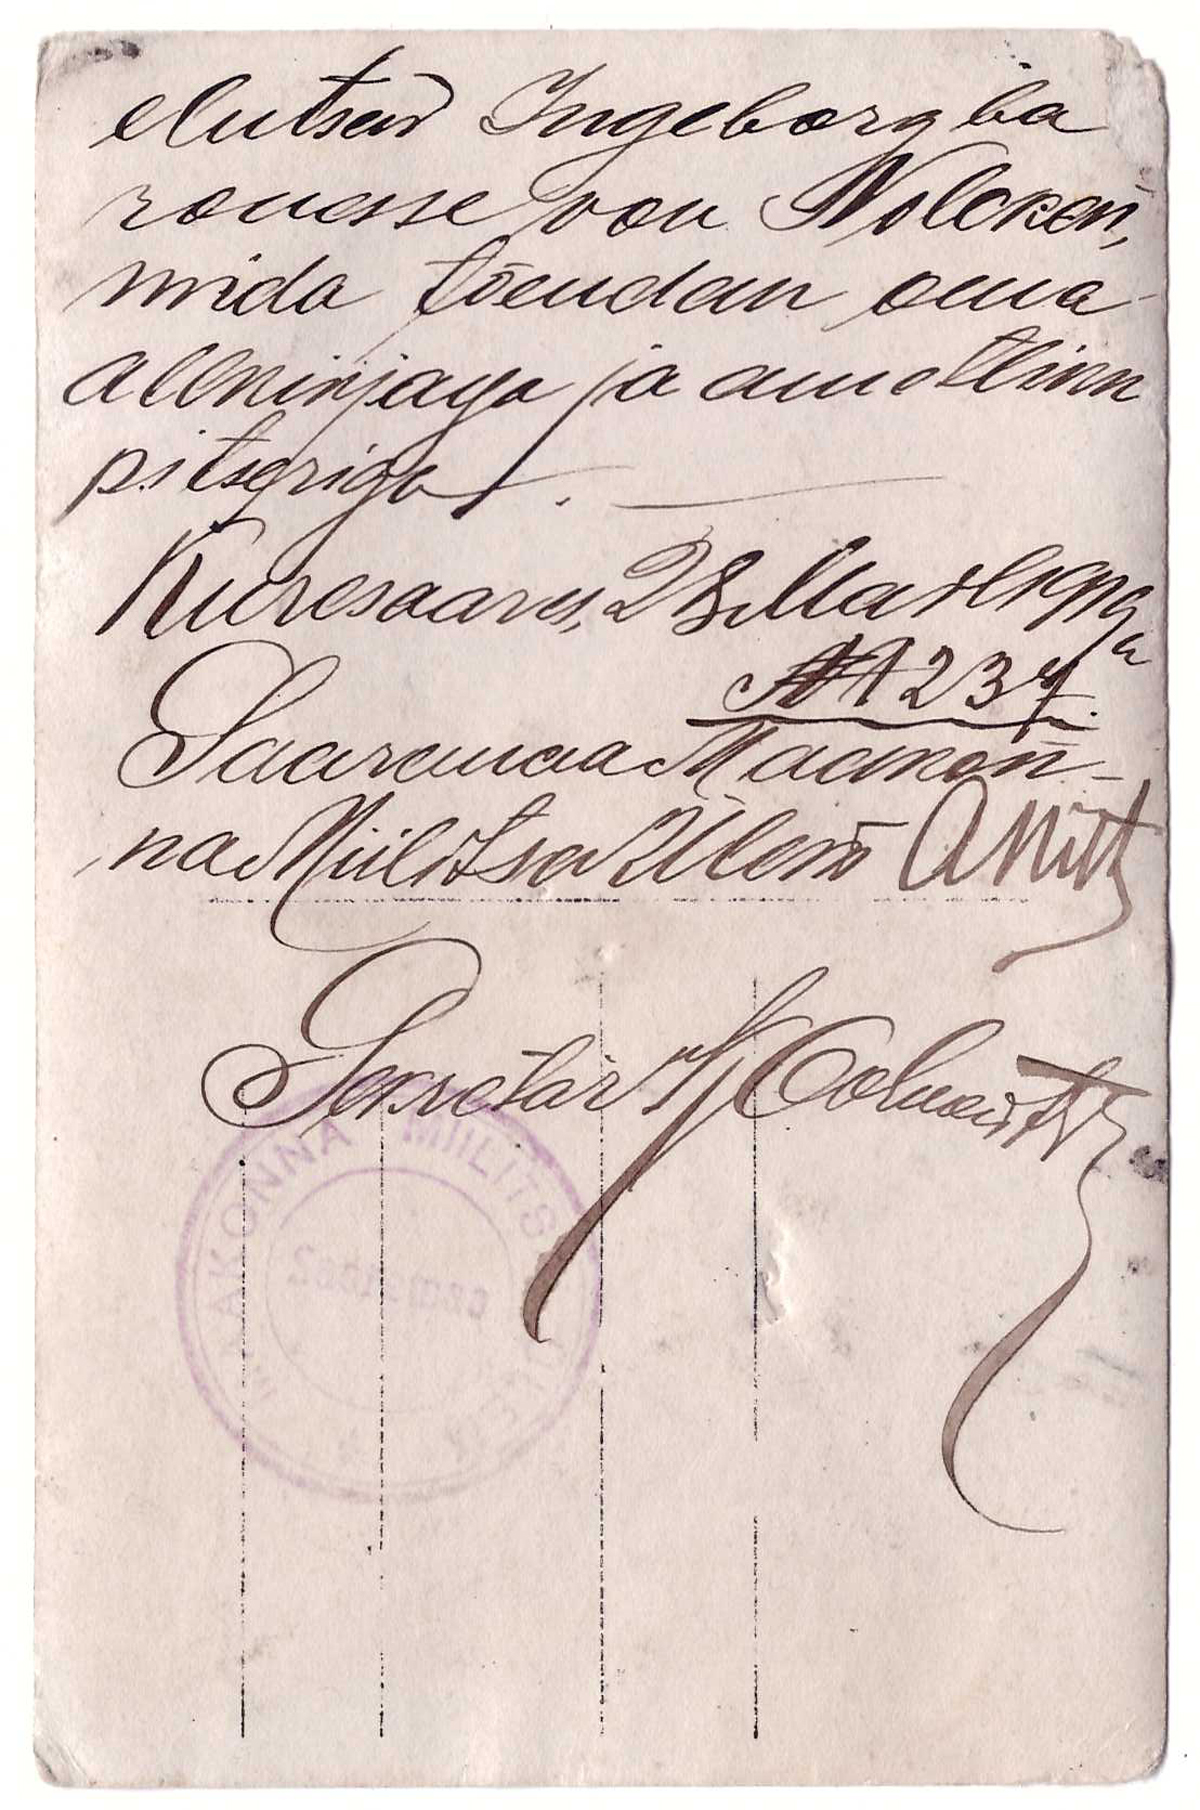 elutsev Ingeborg ba
ronesse von Nolcken,
mida tõendan oma
allkirjaga ja ametlikku
pitseriga.
Kuresaares, 28 Mail 1919 a
№ 1237.
Saaremaa Maakon-
na Miilitsa Ülem
Sekretär
AKONNA MIILITS